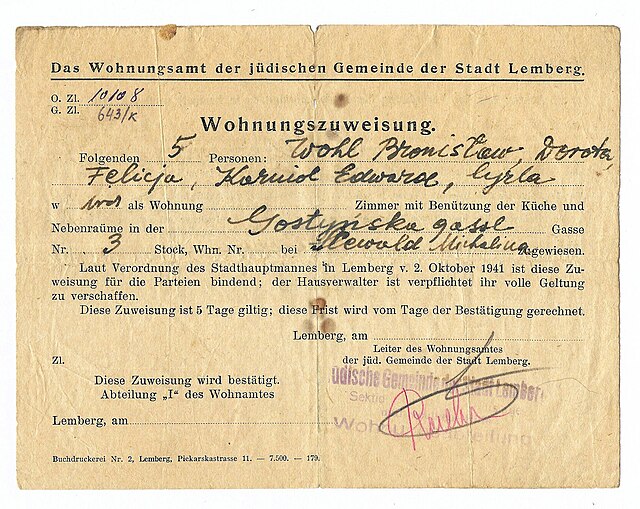 Das Wohnungsamt der jüdischen Gemeinde der Stadt Lemberg.
O. Zl. 10108
G. Zl. 643/k
Wohnungszuweisung.
Folgenden 5 Personen: Wohl Bronisław, Dorota,
Felicja, Karniol Edward, Cyrla
w als Wohnung Zimmer mit Benützung der Küche und
Nebenräume in der Gostyńska gasse Gasse
Nr. 3 Stock, Whn. Nr. bei Michalina zugewiesen.
Laut Verordnung des Stadthauptmannes in Lemberg v. 2. Oktober 1941 ist diese Zu-
weisung für die Parteien bindend; der Hausverwalter ist verpflichtet ihr volle Geltung
zu verschaffen.
Diese Zuweisung ist 5 Tage giltig; diese Frist wird vom Tage der Bestätigung gerechnet.
Lemberg, am
Leiter des Wohnungsamtes
der jüd. Gemeinde der Stadt Lemberg.
Zl.
Diese Zuweisung wird bestätigt.
Abteilung „I" des Wohnamtes
Lemberg, am
üdische Gemeinde der Stadt Lember
Buchdruckerei Nr. 2, Lemberg, Piekarskastrasse 11. — 7.500. — 179.